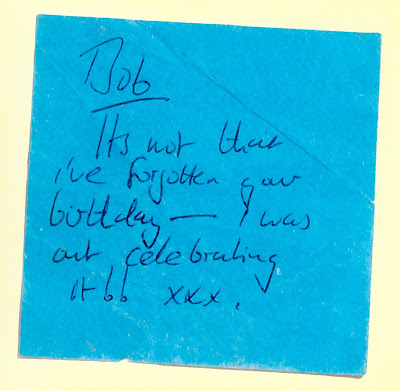 Bob
Its not that
i've forgotten your
birthday — I was
out celebrating
it bb xxx.